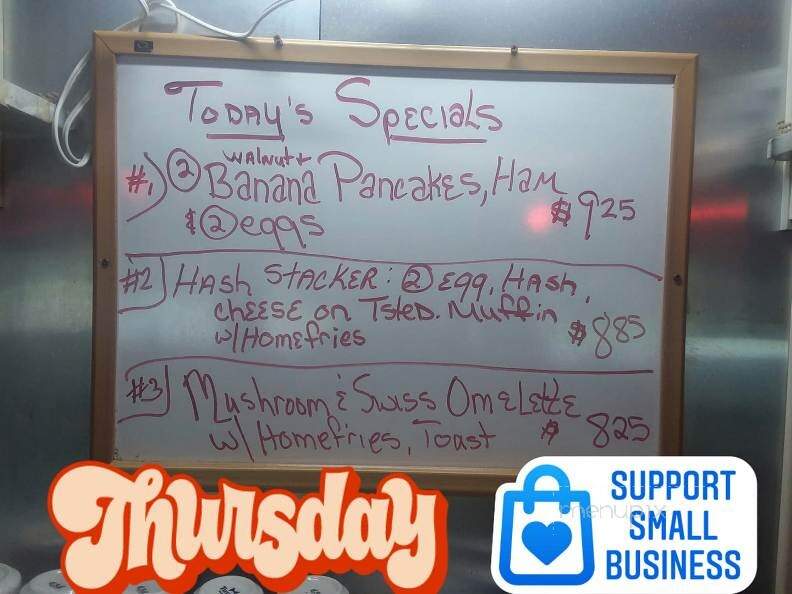 Today's Specials
#1) ② walnut +
Banana Pancakes, Ham
& ② eggs $ 9 25
#2 Hash Stacker: ② Egg, Hash,
cheese on Tsted. Muffin
w/ Homefries $ 8 85
#3 Mushroom & Swiss Omelette
w/ Homefries, Toast $ 8 25
Thursday
SUPPORT
SMALL
BUSINESS
menupix